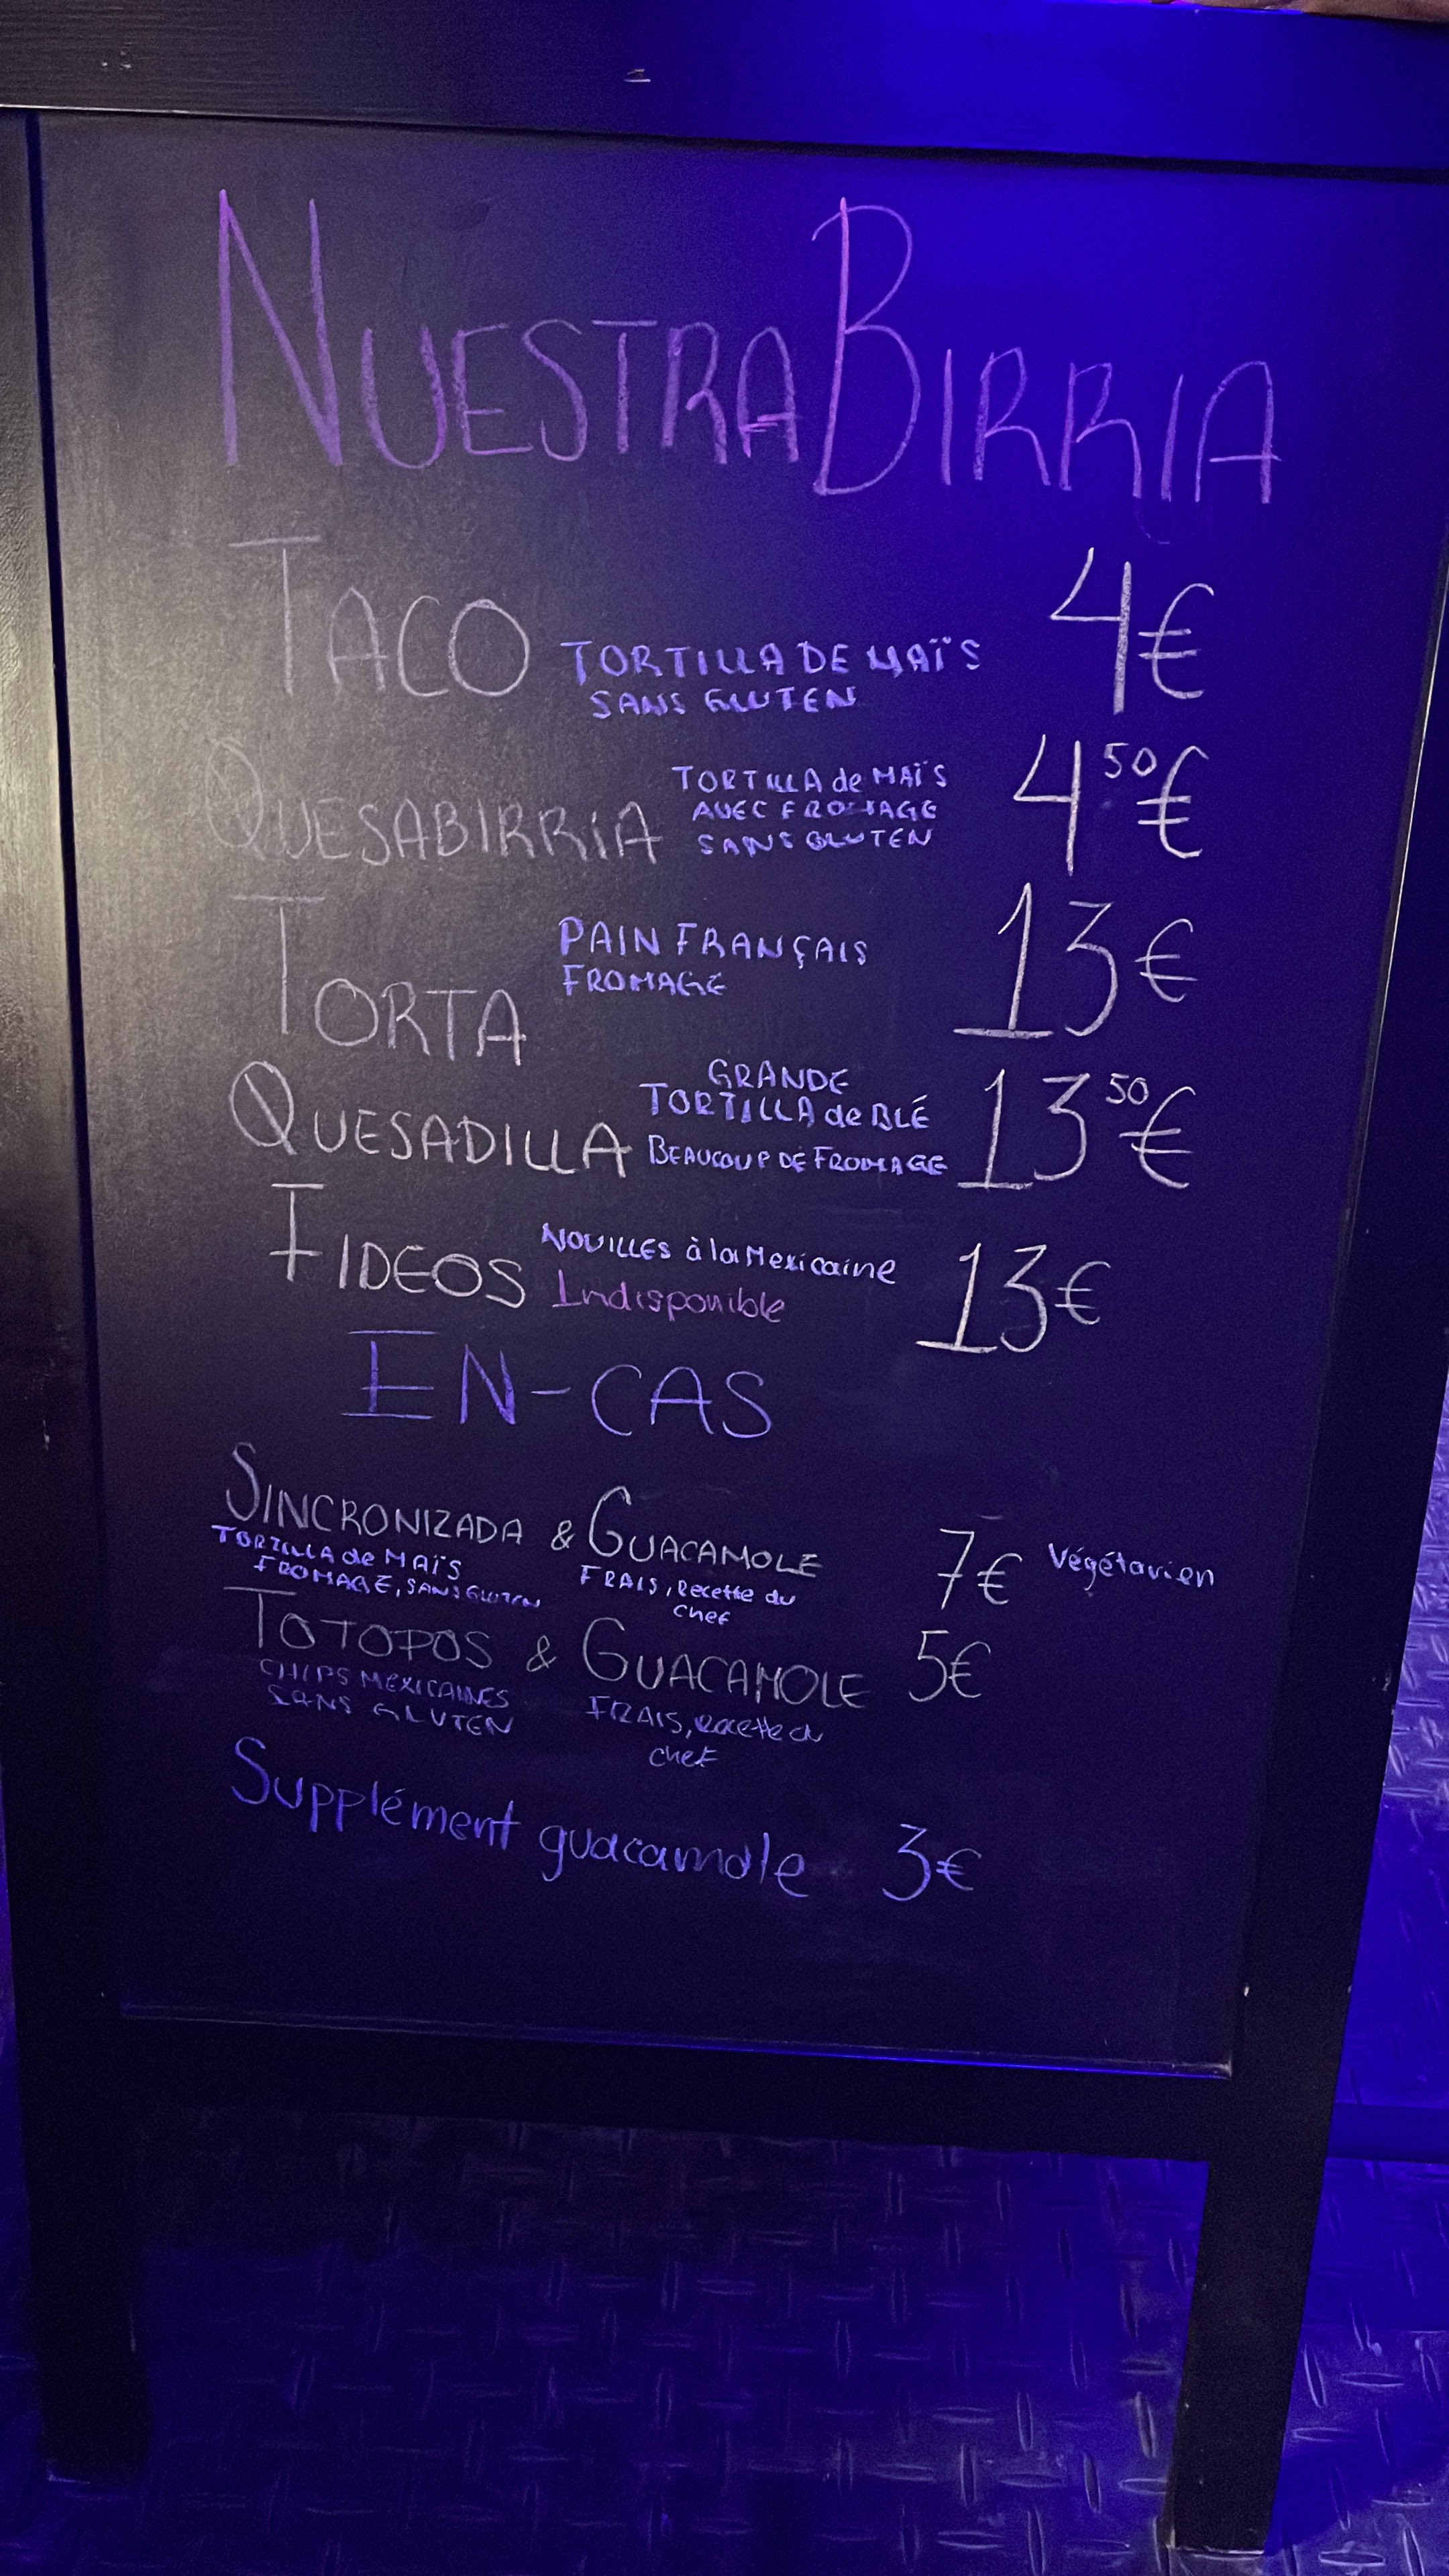 NUESTRA BIRRIA
TACO TORTILLA DE MAÏS 4€
SANS GLUTEN
QUESABIRRIA TORTILLA de MAÏS 4⁵⁰€
AVEC FROMAGE
SANS GLUTEN
TORTA PAIN FRANÇAIS 13€
FROMAGE
GRANDE
QUESADILLA TORTILLA de BLÉ 13⁵⁰€
BEAUCOUP DE FROMAGE
FIDEOS NOUILLES à la Mexicaine 13€
Indisponible
EN-CAS
SINCRONIZADA & GUACAMOLE 7€ Végétarien
TORTILLA de MAÏS FRAIS, Recette du
FROMAGE, SANS GLUTEN chef
TOTOPOS & GUACAMOLE 5€
CHIPS MEXICAINES FRAIS, recette du
SANS GLUTEN chef
Supplément guacamole 3€